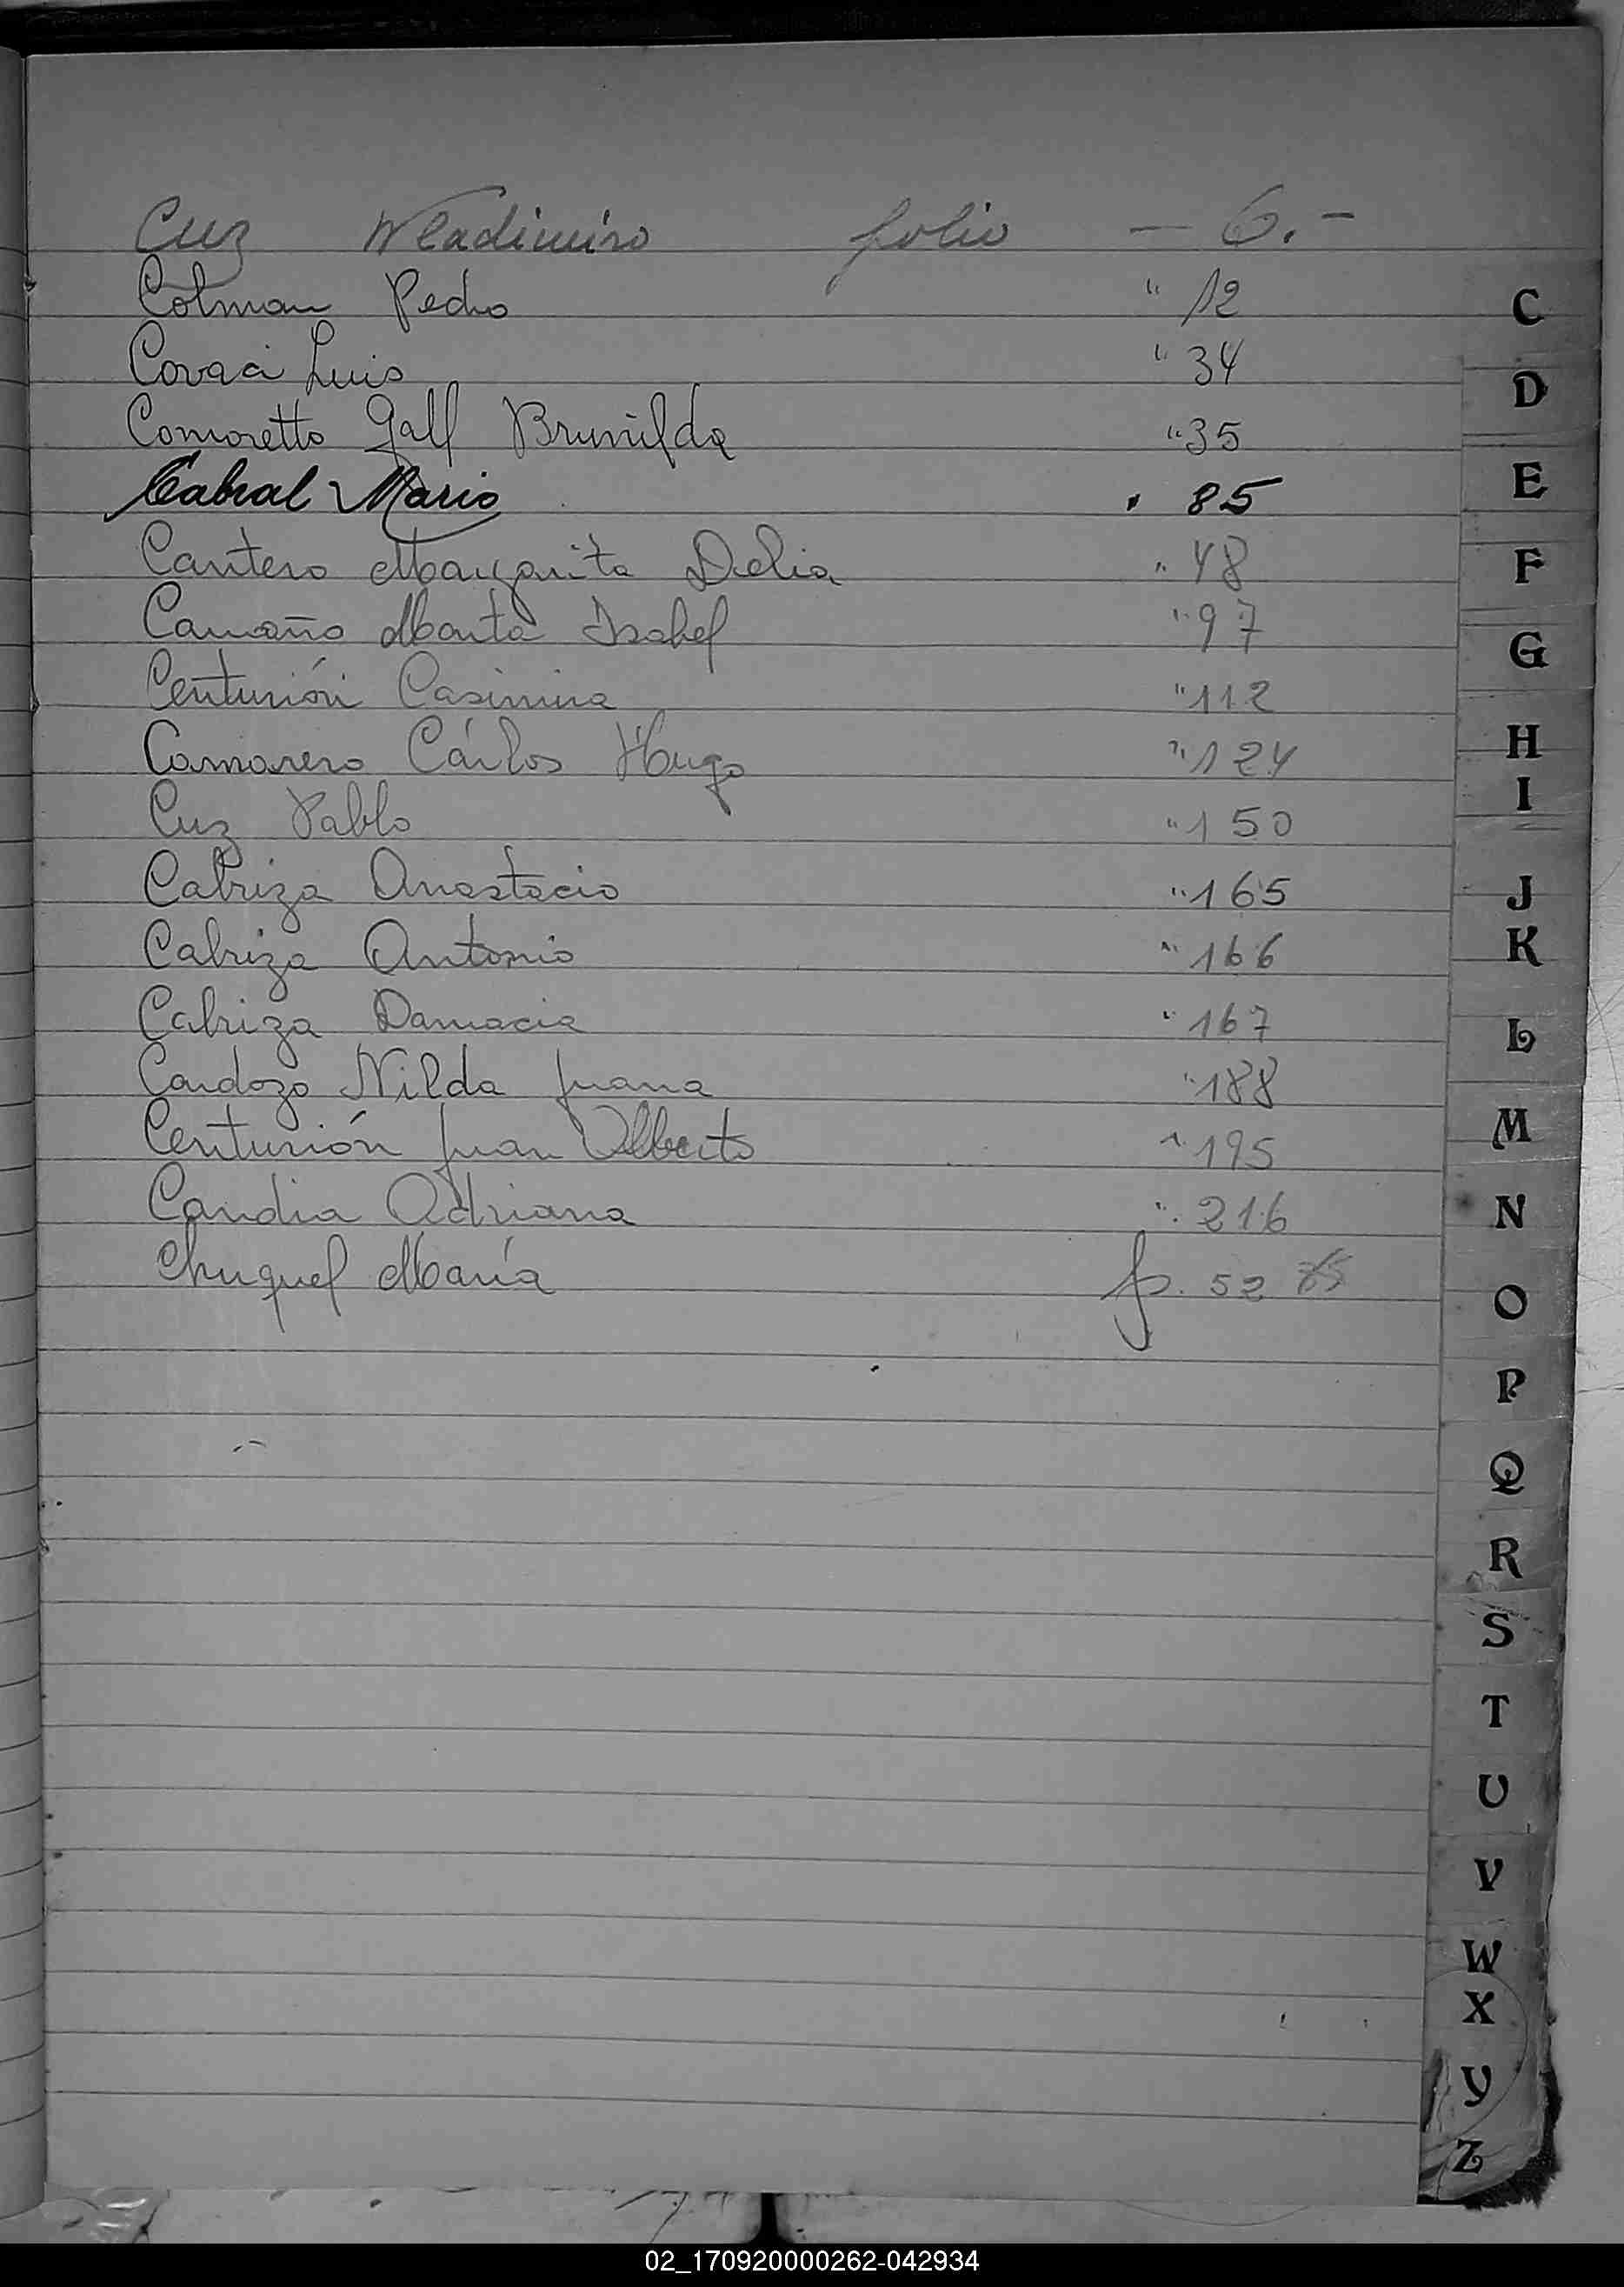 Cuz Wladimiro folio — 6.-
Colman Pedro " 12
Covaci Luis " 34
Comoretto Gall Brunilda " 35
Cabral Mario " 85
Cantero Margarita Delia " 48
Camaño Marta Isabel " 97
Centurión Casimira " 112
Camarero Cárlos Hugo " 124
Cuz Pablo " 150
Cabriza Anastacio " 165
Cabriza Antonio " 166
Cabriza Damacia " 167
Cardozo Nilda Juana " 188
Centurión Juan Alberto " 195
Candia Adriana " 216
Chuquel María f. 52
C
D
E
F
G
H
I
J
K
L
M
N
O
P
Q
R
S
T
U
V
W
X
Y
Z
02_170920000262-042934